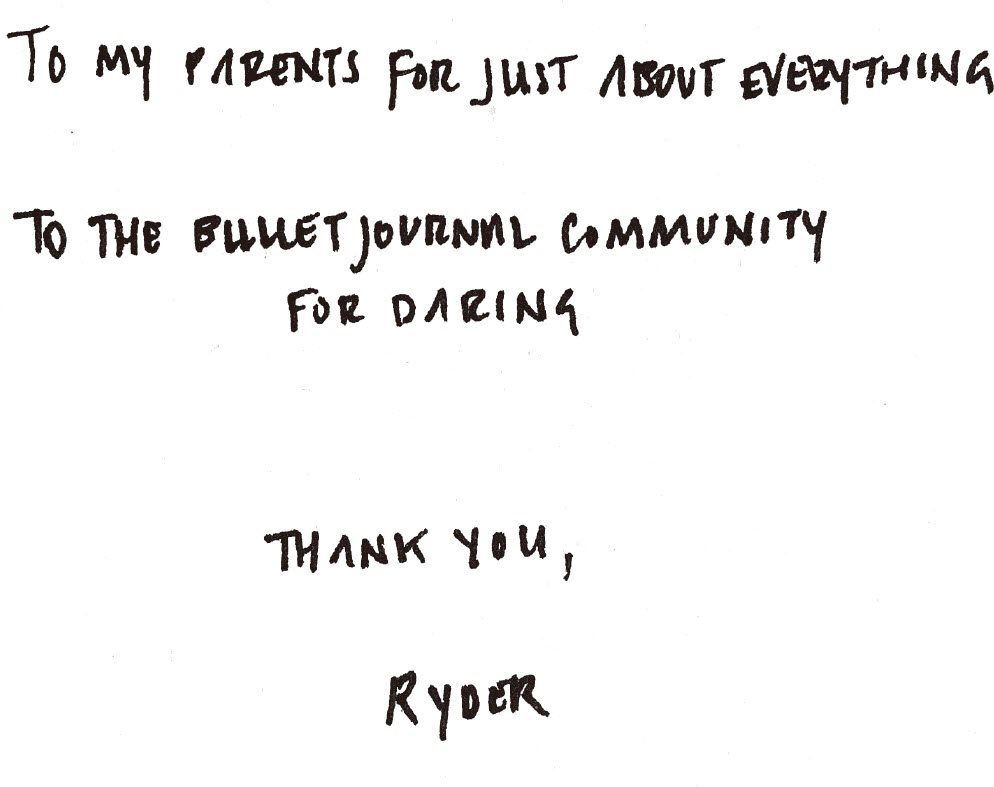 TO MY PARENTS FOR JUST ABOUT EVERYTHING
TO THE BULLET JOURNAL COMMUNITY
FOR DARING
THANK YOU,
RYDER